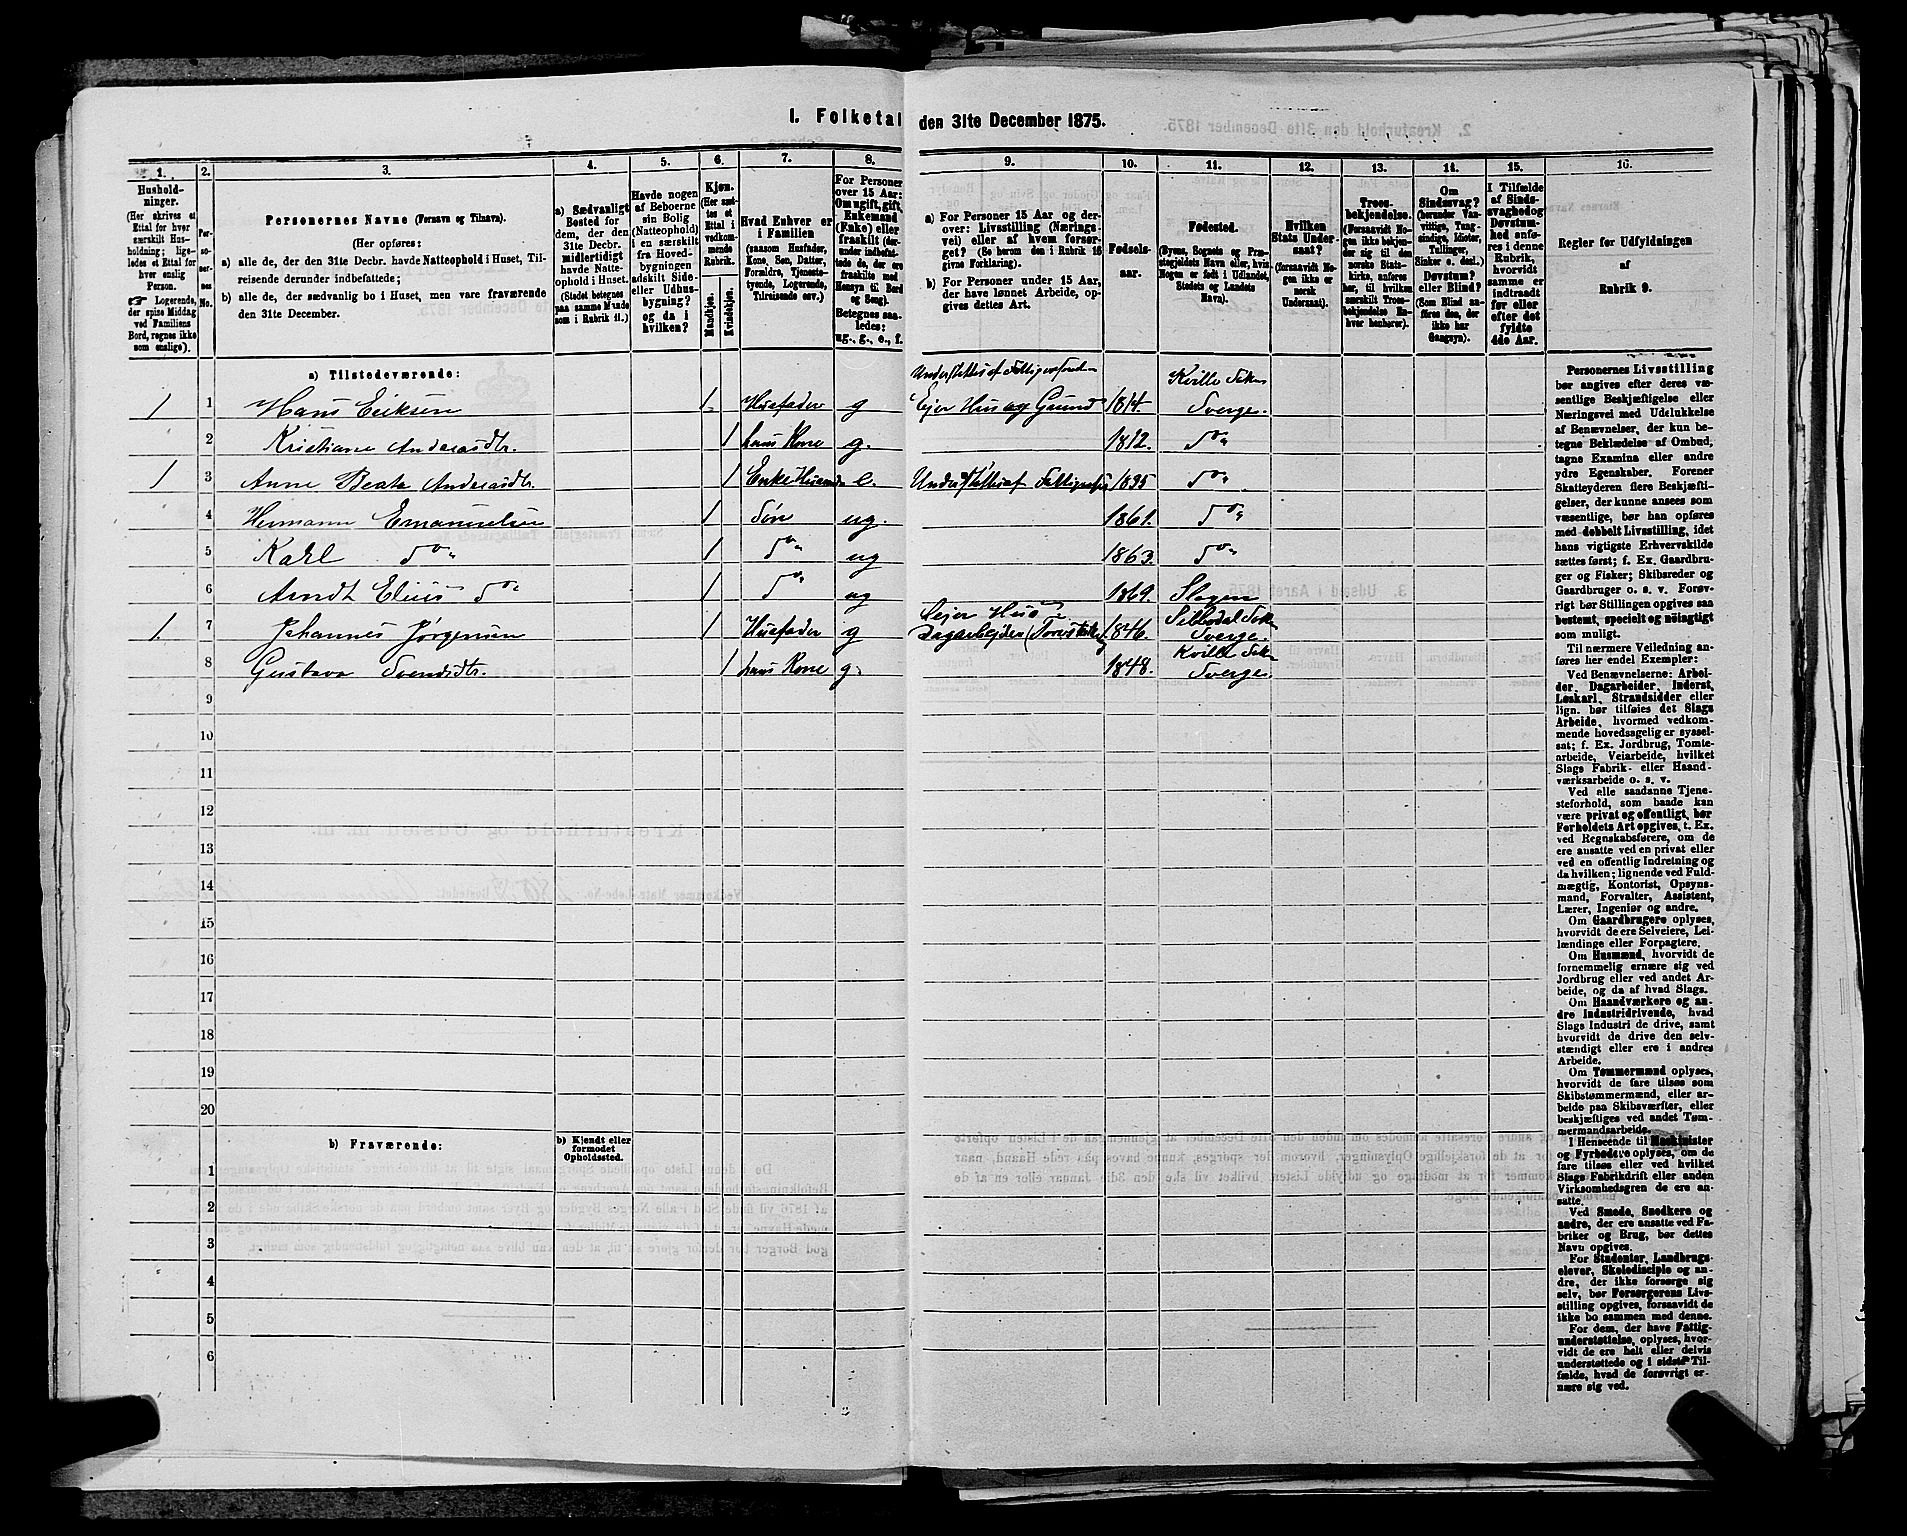 I. Folketal den 31te December 1875.
1. 2. 3. 4. 5. 6. 7. 8. 9. 10. 11. 12. 13. 14. 15. 16.
Hushold-
ninger.
(Her skrives et
Ettal for hver
særskilt Hus-
holdning; lige-
ledes et Ettal for
hver enslig
Person.
☞ Logerende,
der spise Middag
ved Familiens
Bord, regnes ikke
som enslige).
Per-
so-
ner-
nes
No.
Personernes Navne (Fornavn og Tilnavn).
(Her opføres:
a) alle de, der den 31te Decbr. havde Natteophold i Huset, Til-
reisende derunder indbefattede;
b) alle de, der sædvanlig bo i Huset, men vare fraværende
den 31te December.
a) Sædvanligt
Bosted for
dem, der den
31te Decbr.
midlertidigt
havde Natte-
ophold i Huset.
(Stedet betegnes
paa samme Maade
som i Rubrik 11.)
Havde nogen
af Beboerne
sin Bolig
(Natteophold)
i en særskilt
fra Hoved-
bygningen
adskilt Side-
eller Udhus-
bygning?
og da i
hvilken?
Kjøn.
(Her sæt-
tes et
Ettal i
vedkom-
mende
Rubrik.
Mandkjøn.
Kvindekjøn.
Hvad Enhver er
i Familien
(saasom Husfader,
Kone, Søn, Datter,
Forældre, Tjeneste-
tyende, Logerende,
Tilreisende osv.)
For Personer
over 15 Aar:
Om ugift, gift,
Enkemand
(Enke) eller
fraskilt (der-
under indbefat-
tede de, der ere
fraskilte med
Hensyn til Bord
og Seng).
Betegnes saa-
ledes:
ug., g., e., f.
a) For Personer 15 Aar og der-
over: Livsstilling (Nærings-
vei) eller af hvem forsør-
get? (Se herom den i Rubrik 16
givne Forklaring).
b) For Personer under 15 Aar,
der have lønnet Arbeide, op-
gives dettes Art.
Fødsels-
aar.
Fødested.
(Byens, Sognets og Præ-
stegjeldets Navn eller, hvis
Nogen er født i Udlandet,
Stedets og Landets
Navn).
Hvilken
Stats Under-
saat?
(forsaavidt No-
gen ikke er
norsk
Undersaat).
Troes-
bekjendelse.
(Forsaavidt No-
gen ikke bekjen-
der sig til den
norske Stats-
kirke, anføres
her, til hvilken
særskilt Troes-
bekjendelse En-
hver henhører).
Om
Sindssvag?
(herunder Van-
vittige, Tung-
sindige, Idioter,
Tullinger,
Sinker o. desl.)
Døvstum?
eller Blind?
(Som Blind an-
føres den, der
ikke har
Gangsyn).
I Tilfælde
af Sinds-
svaghed og
Døvstum-
hed anfø-
res i denne
Rubrik,
hvorvidt
samme er
indtraadt
før eller
efter det
fyldte
4de Aar.
Regler for Udfyldningen
af
Rubrik 9.
a) Tilstedeværende:
Understøttes af
1 1 Hans Eriksen 1. Husfader g Ejer Hus og Grund 1814. Kville Sokn Sverge.
2 Kristiane Andersdtr. 1 hans Kone g. 1812. Do
1 3 Anne Beate Andersdtr. 1 Enke e. 1835 Do
4 Hermann Emanuelsen 1 Søn ug. 1861. Do
5 Karl Do 1 Do ug 1863. Do
6 Arndt Elius Do 1 Do ug 1869. Slagen
1. 7 Johannes Jørgensen 1 Husfader g Dagarbejder 1846. Sverge.
8 Gustava Svendsdtr. 1 hans Kone g. 1848. Kville Sokn Sverge.
9
10
11
12
13
14
15
16
17
18
19
20
b) Fraværende:
b) Kjendt eller
formodet
Opholdssted.
1
2
3
4
5
6
Personernes Livsstilling
bør angives efter deres væ-
sentlige Beskjæftigelse eller
Næringsvei med Udelukkelse
af Benævnelser, der kun be-
tegne Beklædelse af Ombud,
tagne Examina eller andre
ydre Egenskaber. Forener
Skatteyderen flere Beskjæfti-
gelser, der kunne ansees som
væsentlige, bør han opføres
med dobbelt Livsstilling, idet
hans vigtigste Erhvervskilde
sættes først; f. Ex. Gaardbru-
ger og Fisker; Skibsreder og
Gaardbruger o. s. v. Forøv-
rigt bør Stillingen opgives saa
bestemt, specielt og nøiagtigt
som muligt.
Til nærmere Veiledning an-
føres her endel Exempler:
Ved Benævnelserne: Arbei-
der, Dagarbeider, Inderst,
Løskarl, Strandsidder eller
lign. bør tilføies det Slags
Arbeide, hvormed vedkom-
mende hovedsagelig er syssel-
sat; f. Ex. Jordbrug, Tomte-
arbeide, Veiarbeide, hvilket
Slags Fabrik- eller Haand-
værksarbeide o. s. v.
Ved alle saadanne Tjene-
steforhold, som baade kan
være privat og offentligt, bør
Forholdets Art opgives, t. Ex.
ved Regnskabsførere, om de
ere ansatte ved en privat eller
ved en offentlig Indretning og
da hvilken; lignende ved Fuld-
mægtig, Kontorist, Opsyns-
mand, Forvalter, Assistent,
Lærer, Ingeniør og andre.
Om Gaardbrugere oplyses,
hvorvidt de ere Selveiere, Lei-
lændinge eller Forpagtere.
Om Husmænd, hvorvidt de
fornemmelig ernære sig ved
Jordbrug eller ved andet Ar-
beide, og da af hvad Slags.
Om Haandværkere og an-
dre Industridrivende, hvad
Slags Industri de drive, samt
hvorvidt de drive den selv-
stændigt eller ere i andres
Arbeide.
Om Tømmermænd oplyses,
hvorvidt de fare tilsøs som
Skibstømmermænd, eller ar-
beide paa Skibsværfter, eller
beskjæftiges ved andet Tøm-
mermandsarbeide.
I Henseende til Maskinister
og Fyrbødere oplyses, om de
fare tilsøs eller ved hvilket
Slags Fabrikdrift eller anden
Virksomhedsgren de ere an-
satte.
Ved Smede, Snedkere og
andre, der ere ansatte ved Fa-
briker og Brug, bør dettes
Navn opgives.
For Studenter, Landbrugs-
elever, Skoledisciple og an-
dre, der ikke forsørge sig
selv, bør Forsørgerens Livs-
stilling opgives, forsaavidt de
ikke bo sammen med denne.
For dem, der have Fattig-
understøttelse, oplyses, hvor-
vidt de ere helt eller delvis
understøttede og i sidste Til-
fælde, hvad de forøvrigt er-
nære sig ved.